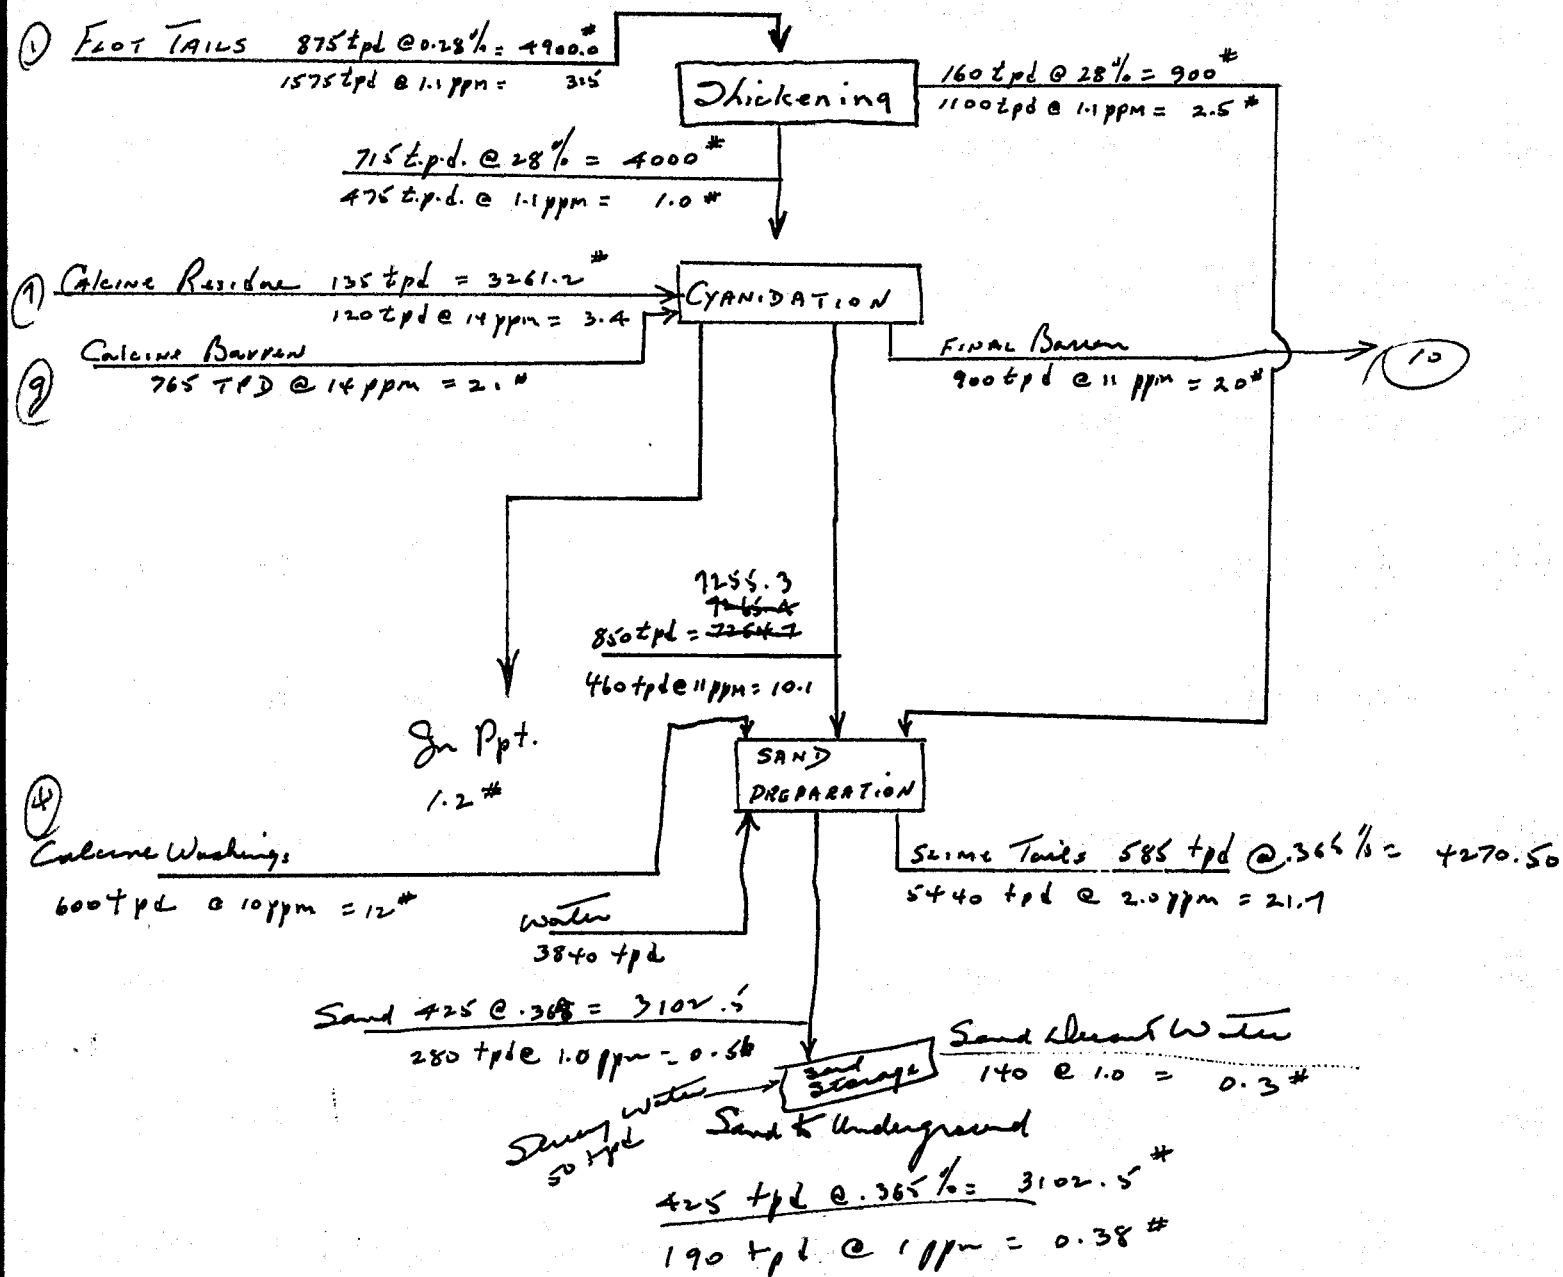 ① FLOT TAILS 875 tpd @ 0.28% = 4900.0#
1575 tpd @ 1.1 ppm = 3.5
Thickening
160 tpd @ 28% = 900#
1100 tpd @ 1.1 ppm = 2.5#
715 t.p.d. @ 28% = 4000#
475 t.p.d. @ 1.1 ppm = 1.0#
⑦ Calcine Residue 135 tpd = 3261.2#
120 tpd @ 14 ppm = 3.4
CYANIDATION
⑨ Calcine Barren
765 TPD @ 14 ppm = 21#
FINAL Barren
900 tpd @ 11 ppm = 20#
10
7255.3
7265.4
850 tpd = 7264.7
460 tpd @ 11 ppm = 10.1
In Ppt.
1.2#
SAND
PREPARATION
④
Calcine Washings
600 tpd @ 10 ppm = 12#
Water
3840 tpd
SLIME Tails 585 tpd @ .365% = 4270.50
5440 tpd @ 2.0 ppm = 21.7
Sand 425 @ .365 = 3102.5
280 tpd @ 1.0 ppm = 0.56
Sand
Storage
Sand Decant Water
140 @ 1.0 = 0.3#
Water
50 tpd
Sand to Underground
425 tpd @ .365% = 3102.5#
190 tpd @ 1 ppm = 0.38#